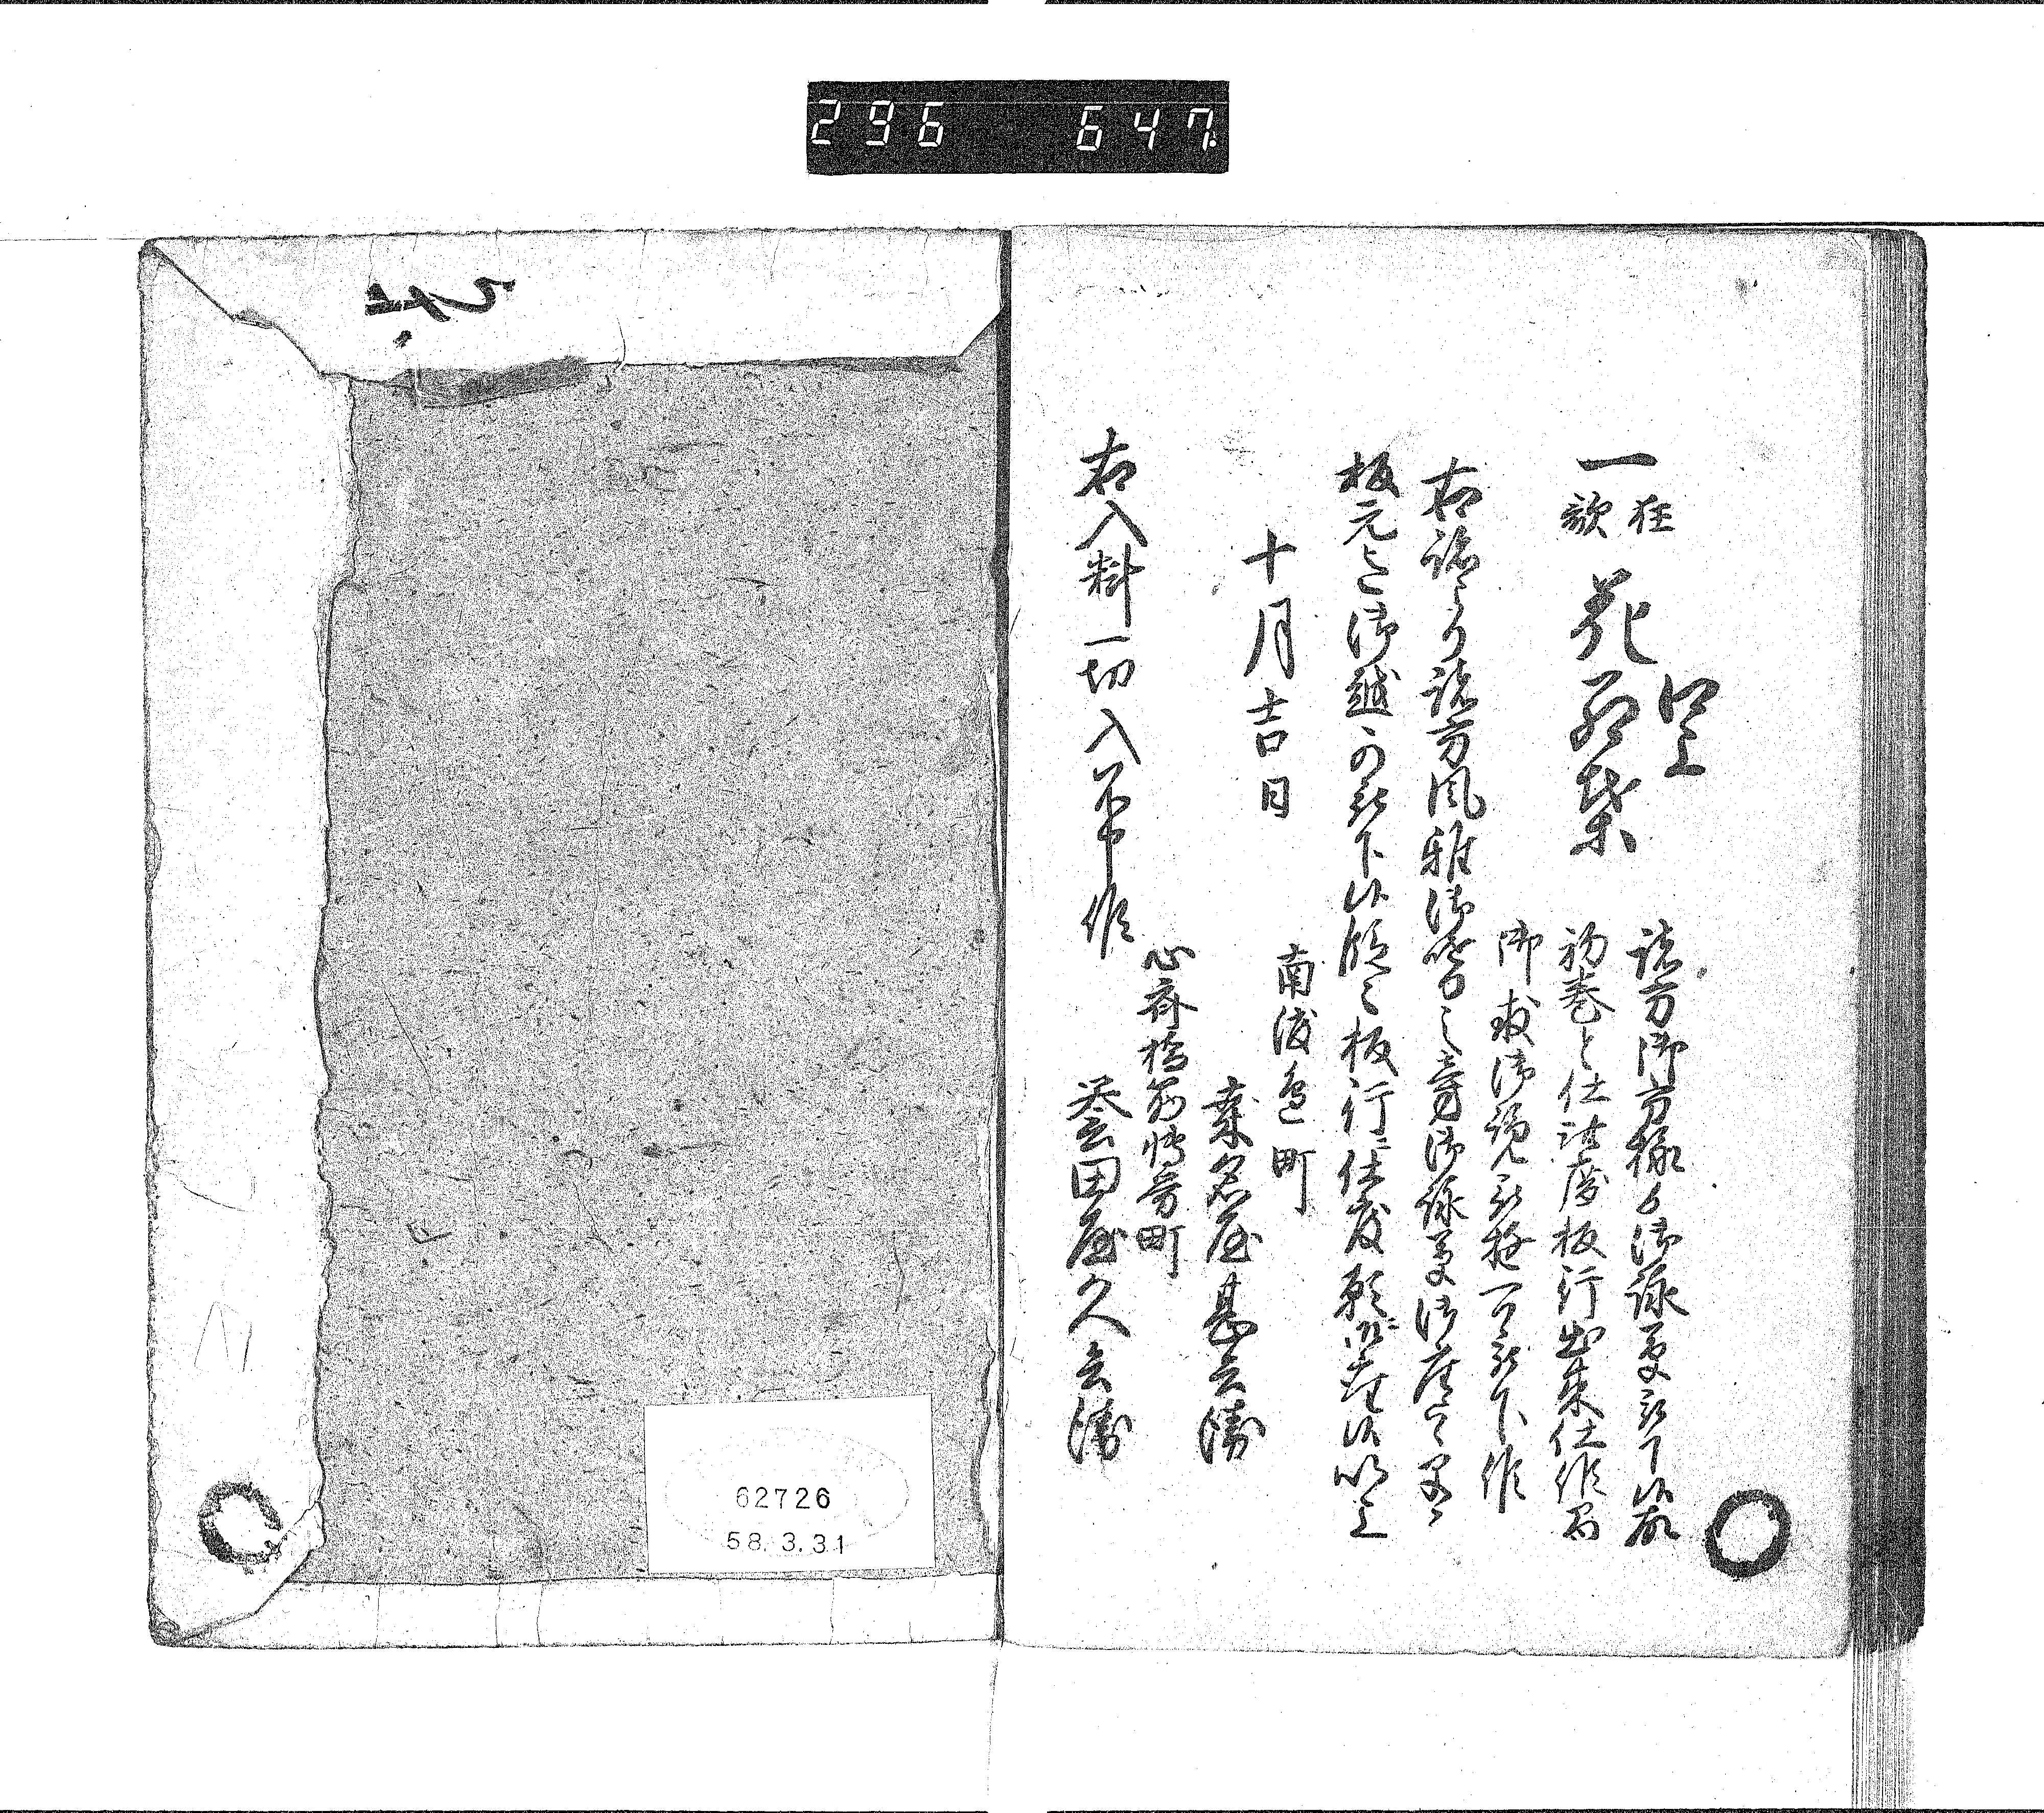 296 647
口上
一 狂歌 花紅葉
諸方御方様ゟ御詠草被下候故
初巻と仕此度板行出来仕候間
御求御覧被遊可被下候
右詠より諸方風雅御嗜之旁御詠草御座候ハヽ
板元迄御越可被下候段々板行ニ仕度願ニ御座候以上
十月吉日
南渡辺町
桑名屋甚兵衛
心斎橋筋博労町
誉田屋久兵衛
右入料一切入不申候
62726
58.3.31